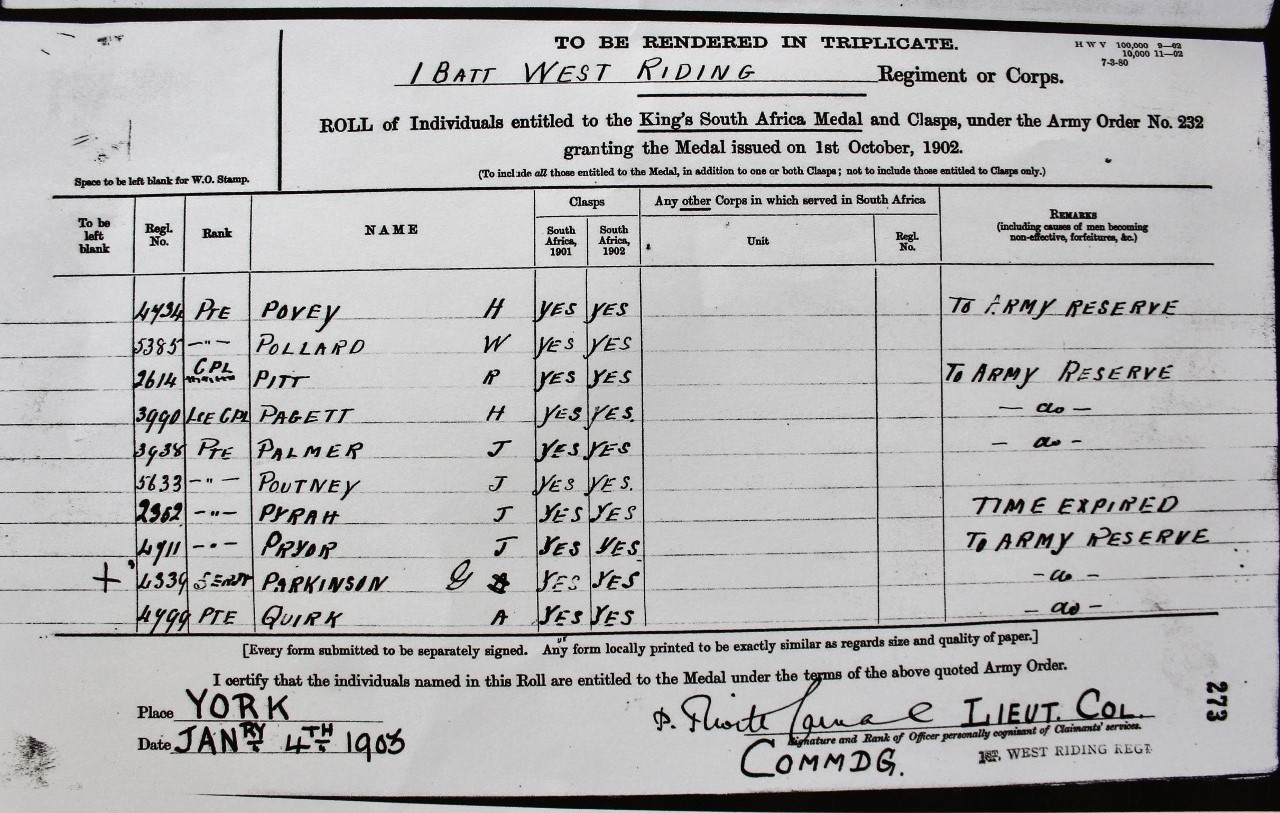 TO BE RENDERED IN TRIPLICATE.
H W V 100,000 9—02
10,000 11—02
7-3-80
1 BATT WEST RIDING Regiment or Corps.
ROLL of Individuals entitled to the King's South Africa Medal and Clasps, under the Army Order No. 232
granting the Medal issued on 1st October, 1902.
Space to be left blank for W.O. Stamp.
(To include all those entitled to the Medal, in addition to one or both Clasps; not to include those entitled to Clasps only.)
To be left blank Regl. No. Rank NAME Clasps South Africa, 1901 South Africa, 1902 Any other Corps in which served in South Africa Unit Regl. No. REMARKS (including causes of men becoming non-effective, forfeitures, &c.)
4734 PTE POVEY H YES YES TO ARMY RESERVE
5385 —"— POLLARD W YES YES
2614 CPL PITT R YES YES TO ARMY RESERVE
3990 LCE CPL PAGETT H YES YES. — do —
3938 PTE PALMER J YES YES — do —
5633 —"— POUTNEY J YES YES.
2362 —"— PYRAH J YES YES TIME EXPIRED
4911 —"— PRYOR J YES YES TO ARMY RESERVE
+ 4339 SERJT PARKINSON G YES YES — do —
4799 PTE QUIRK A YES YES — do —
[Every form submitted to be separately signed. Any form locally printed to be exactly similar as regards size and quality of paper.]
I certify that the individuals named in this Roll are entitled to the Medal under the terms of the above quoted Army Order.
Place YORK
LIEUT. COL.
Date JANRY 4TH 1903
Signature and Rank of Officer personally cognizant of Claimants' services.
COMMDG. 1ST. WEST RIDING REGT
273